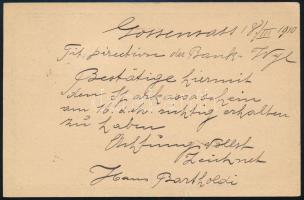 Gossensass 18/III 1910
Tit. Direction der Bank - Wyl
Bestätige hiermit
den Sparkassaschein
am 16. d. M. richtig erhalten
zu haben
Achtungsvollst
Zeichnet
Hans Bartholdi